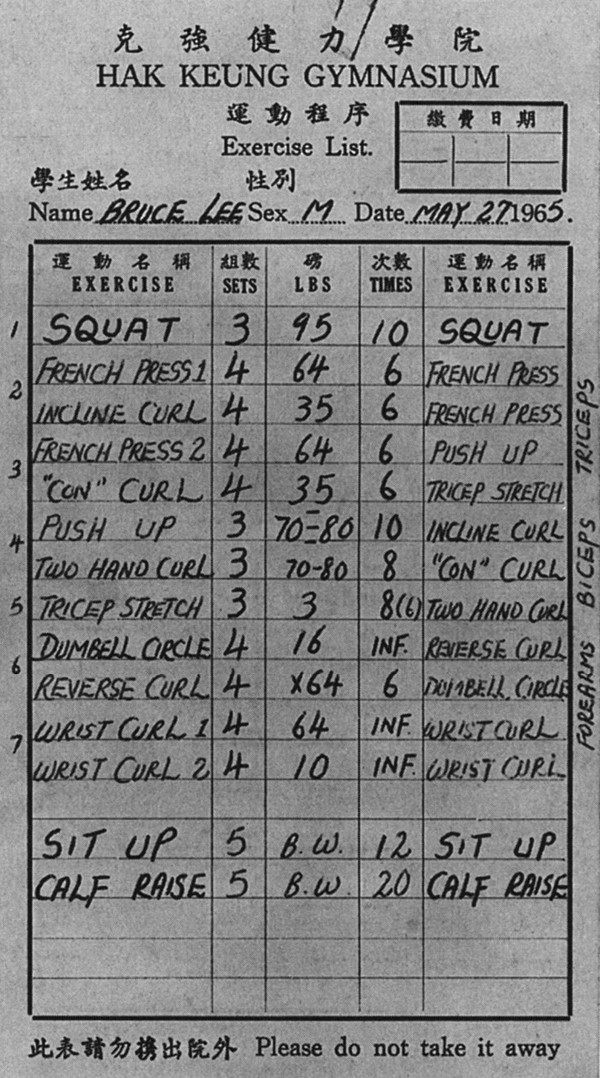 克強健力學院
HAK KEUNG GYMNASIUM
運動程序
Exercise List.
繳費日期
學生姓名 性別
Name BRUCE LEE Sex M Date MAY 27 1965.
運動名稱 組數 磅 次數 運動名稱
EXERCISE SETS LBS TIMES EXERCISE
1 SQUAT 3 95 10 SQUAT
2 FRENCH PRESS 1 4 64 6 FRENCH PRESS
INCLINE CURL 4 35 6 FRENCH PRESS
3 FRENCH PRESS 2 4 64 6 PUSH UP
"CON" CURL 4 35 6 TRICEP STRETCH
4 PUSH UP 3 70-80 10 INCLINE CURL
TWO HAND CURL 3 70-80 8 "CON" CURL
5 TRICEP STRETCH 3 3 8(6) TWO HAND CURL
DUMBELL CIRCLE 4 16 INF. REVERSE CURL
6 REVERSE CURL 4 X64 6 DUMBELL CIRCLE
7 WRIST CURL 1 4 64 INF. WRIST CURL
WRIST CURL 2 4 10 INF. WRIST CURL
SIT UP 5 B.W. 12 SIT UP
CALF RAISE 5 B.W. 20 CALF RAISE
TRICEPS
BICEPS
FOREARMS
此表請勿携出院外 Please do not take it away